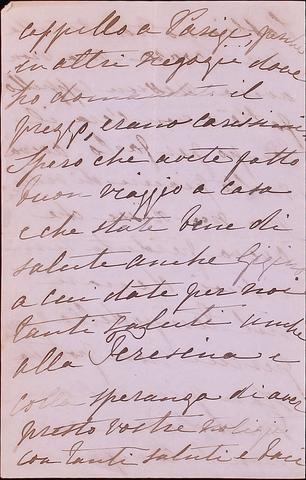 cappello a Parigi, perchè
in altri negozii dove
ho domandato il
prezzo, erano carissimi
Spero che avete fatto
buon viaggio a casa
e che state bene di
salute anche Gigin
a cui date per noi
tanti saluti anche
alla Teresina e
colla speranza di aver
presto vostre notizie
con tanti saluti e baci